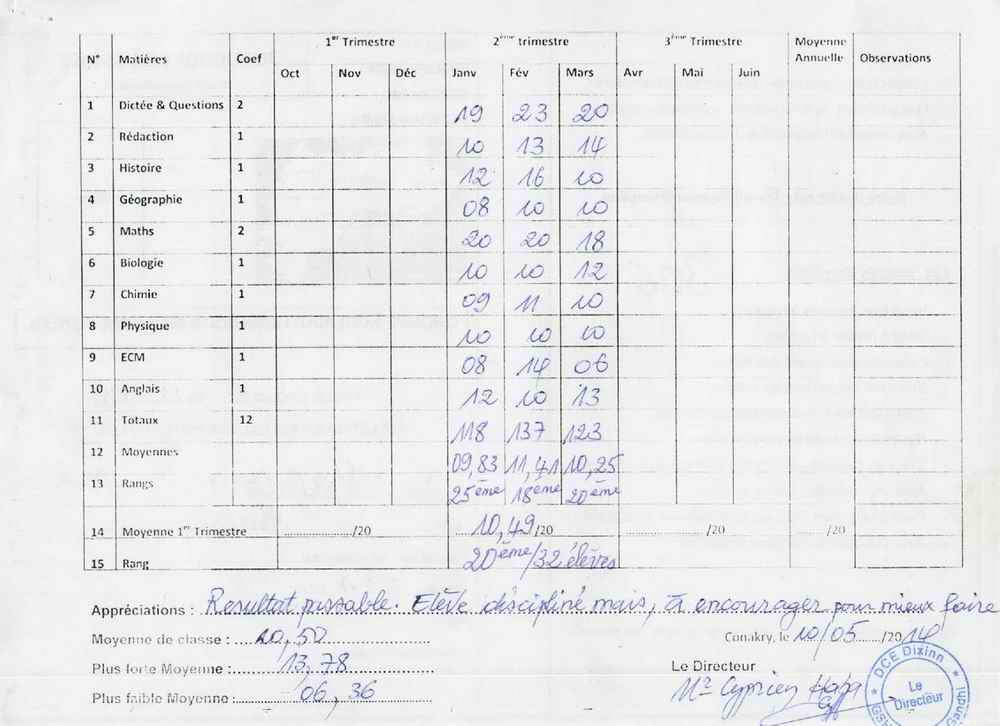 1er Trimestre 2ème trimestre 3ème Trimestre Moyenne Annuelle Observations
N° Matières Coef
Oct Nov Déc Janv Fév Mars Avr Mai Juin
1 Dictée & Questions 2 19 23 20
2 Rédaction 1 10 13 14
3 Histoire 1 12 16 10
4 Géographie 1 08 10 10
5 Maths 2 20 20 18
6 Biologie 1 10 10 12
7 Chimie 1 09 11 10
8 Physique 1 10 10 10
9 ECM 1 08 14 06
10 Anglais 1 12 10 13
11 Totaux 12 118 137 123
12 Moyennes 09,83 11,41 10,25
13 Rangs 25ème 18ème 20ème
14 Moyenne 1er Trimestre ............./20 10,49/20 ............./20 /20
15 Rang 20ème/32 élèves
Appréciations : Resultat passable. Elève discipliné mais, à encourager pour mieux faire
Moyenne de classe : 10,50
Conakry, le 10/05/2014
Plus forte Moyenne : 13,78
Le Directeur
Plus faible Moyenne : 06,36
Mr Cyprien
DCE Dixinn
Le Directeur
Gandhi